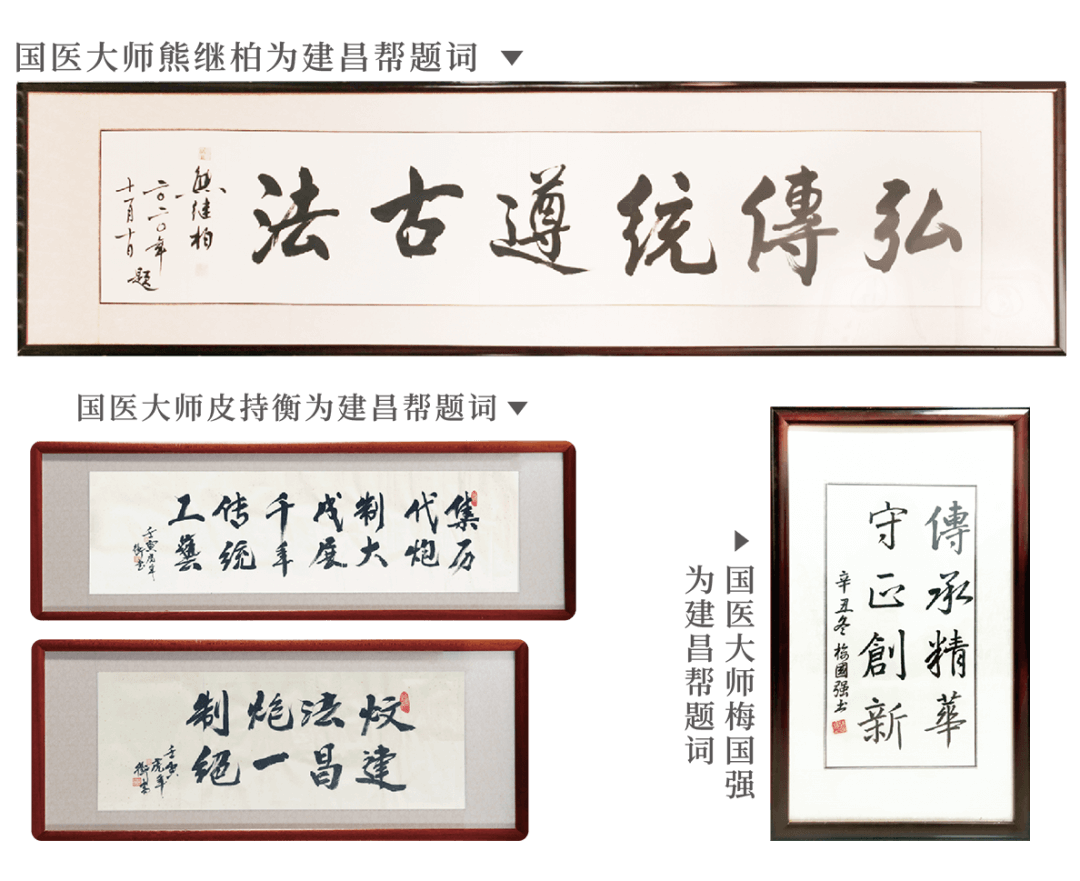 国医大师熊继柏为建昌帮题词
弘傳统遵古法
熊继柏
二〇二〇年
十一月十日题
国医大师皮持衡为建昌帮题词
集历
代炮
制大
成展
千年
传统
工藝
壬寅虎年
衡书
炆法炮制
建昌一绝
壬寅
虎年
衡书
国医大师梅国强
为建昌帮题词
傳承精華
守正創新
辛丑冬梅國强书